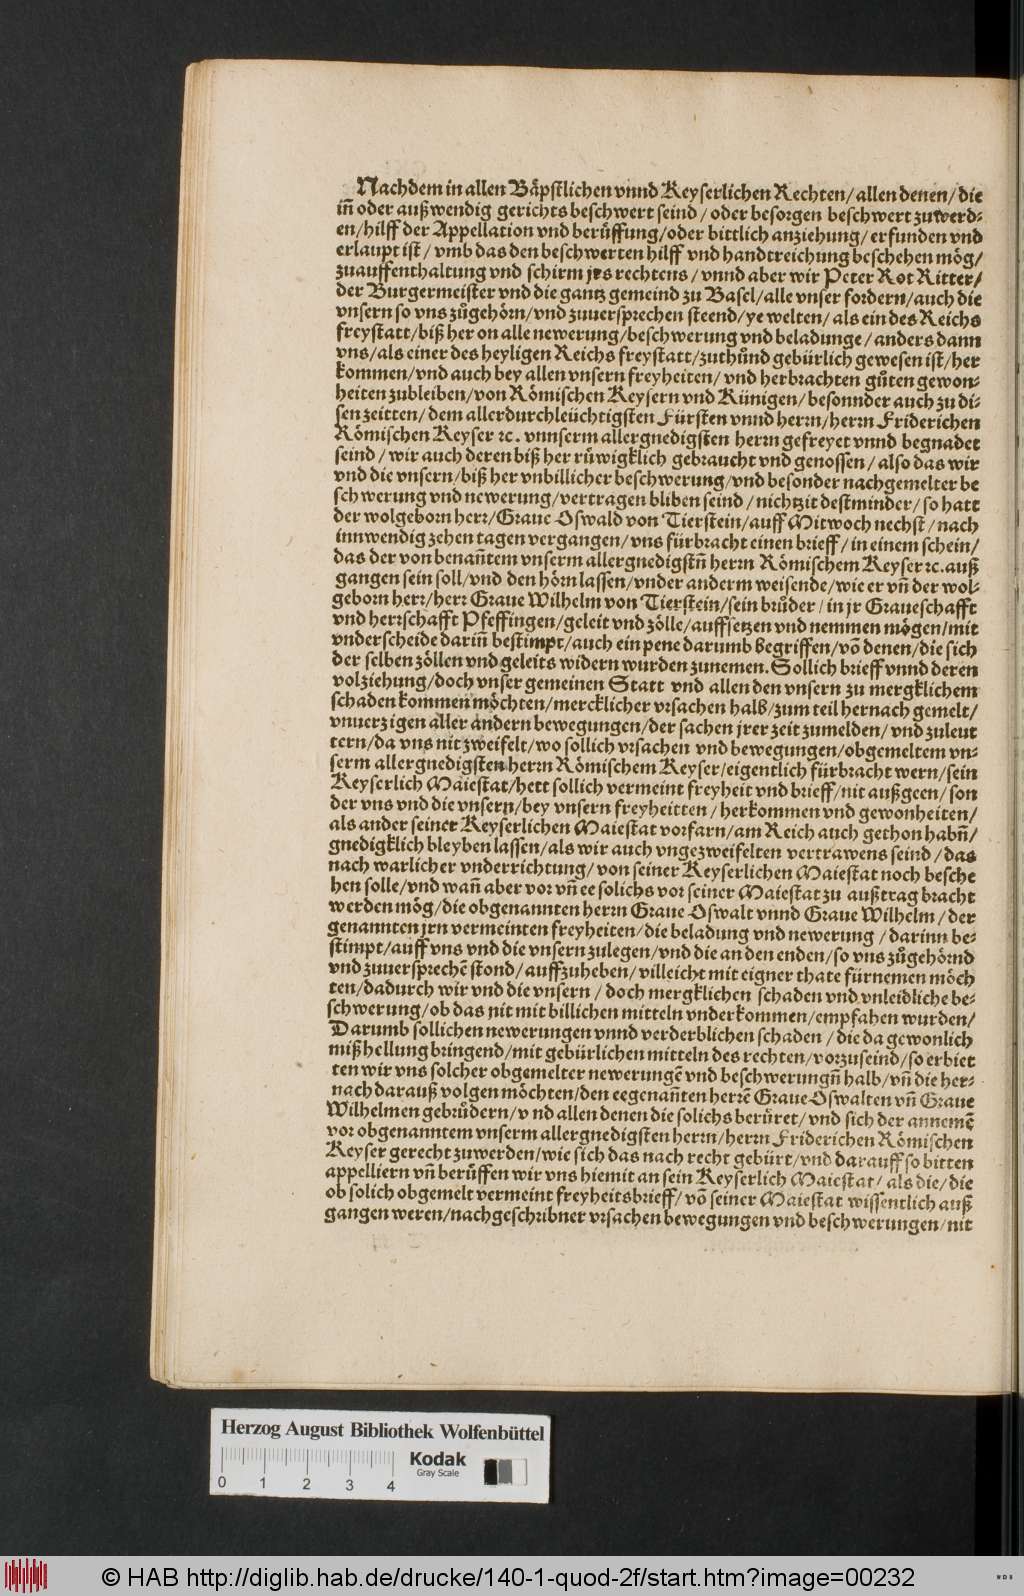 Nachdem in allen Bäpstlichen vnnd Keyserlichen Rechten/ allen denen/ die
iñ oder außwendig gerichts beschwert seind/ oder besorgen beschwert zuwerd-
en/ hilff der Appellation vnd berůffung/ oder bittlich anziehung/ erfunden vnd
erlaupt ist/ vmb das den beschwerten hilff vnd handtreichung beschehen mög/
zuauffenthaltung vnd schirm jrs rechtens/ vnnd aber wir Peter Rot Ritter/
der Burgermeister vnd die gantz gemeind zu Basel/ alle vnser fordern/ auch die
vnsern so vns zůgehörn/ vnd zuuersprechen steend/ ye welten/ als ein des Reichs
freystatt/ biß her on alle newerung/ beschwerung vnd beladunge/ anders dann
vns/ als einer des heyligen Reichs freystatt/ zuthůnd gebürlich gewesen ist/ her
kommen/ vnd auch bey allen vnsern freyheiten/ vnd herbrachten gůten gewon-
heiten zubleiben/ von Römischen Keysern vnd Künigen/ besonnder auch zu di-
sen zeitten/ dem allerdurchleüchtigsten Fürsten vnnd herrn/ herrn Friderichen
Römischen Keyser ꝛc. vnnserm allergnedigsten herrn gefreyet vnnd begnadet
seind/ wir auch deren biß her růwigklich gebraucht vnd genossen/ also das wir
vnd die vnsern/ biß her vnbillicher beschwerung/ vnd besonder nachgemelter be
schwerung vnd newerung/ vertragen bliben seind/ nichtzit destminder/ so hatt
der wolgeborn herr/ Graue Oswald von Tierstein/ auff Mitwoch nechst/ nach
innwendig zehen tagen vergangen/ vns fürbracht einen brieff/ in einem schein/
das der von benañtem vnserm allergnedigstñ herrn Römischem Keyser ꝛc. auß
gangen sein soll/ vnd den hörn lassen/ vnder anderm weisende/ wie er vñ der wol-
geborn herr/ herr Graue Wilhelm von Tierstein/ sein brůder/ in jr Graueschafft
vnd herrschafft Pfeffingen/ geleit vnd zölle/ auffsetzen vnd nemmen mögen/ mit
vnderscheide dariñ bestimpt/ auch ein pene darumb begriffen/ võ denen/ die sich
der selben zöllen vnd geleits widern wurden zunemen. Sollich brieff vnnd deren
volziehung/ doch vnser gemeinen Statt vnd allen den vnsern zu mergklichem
schaden kommen möchten/ mercklicher vrsachen halb/ zum teil hernach gemelt/
vnuerzigen aller andern bewegungen/ der sachen jrer zeit zumelden/ vnd zuleut
tern/ da vns nit zweifelt/ wo sollich vrsachen vnd bewegungen/ obgemeltem vn-
serm allergnedigsten herrn Römischem Keyser/ eigentlich fürbracht wern/ sein
Keyserlich Maiestat/ hett sollich vermeint freyheit vnd brieff/ nit außgeen/ son
der vns vnd die vnsern/ bey vnsern freyheitten/ herkommen vnd gewonheiten/
als ander seiner Keyserlichen Maiestat vorfarn/ am Reich auch gethon habñ/
gnedigklich bleyben lassen/ als wir auch vngezweifelten vertrawens seind/ das
nach warlicher vnderrichtung/ von seiner Keyserlichen Maiestat noch besche
hen solle/ vnd wañ aber vor vñ ee solichs vor seiner Maiestat zu außtrag bracht
werden mög/ die obgenannten herrn Graue Oswalt vnnd Graue Wilhelm/ der
genannten jrn vermeinten freyheiten/ die beladung vnd newerung/ darinn be-
stimpt/ auff vns vnd die vnsern zulegen/ vnd die an den enden/ so vns zůgehörnd
vnd zuuersprechẽ stond/ auffzuheben/ villeicht mit eigner thate fürnemen möch
ten/ dadurch wir vnd die vnsern/ doch mergklichen schaden vnd vnleidliche be-
schwerung/ ob das nit mit billichen mitteln vnderkommen/ empfahen wurden/
Darumb sollichen newerungen vnnd verderblichen schaden/ die da gewonlich
mißhellung bringend/ mit gebürlichen mitteln des rechten/ vorzuseind/ so erbiet
ten wir vns solcher obgemelter newerungẽ vnd beschwerungñ halb/ vñ die her-
nach darauß volgen möchten/ den eegenañten herrẽ Graue Oswalten vñ Graue
Wilhelmen gebrůdern/ vnd allen denen die solichs berůret/ vnd sich der annemẽ
vor obgenanntem vnserm allergnedigsten herrn/ herrn Friderichen Römischen
Keyser gerecht zuwerden/ wie sich das nach recht gebürt/ vnd darauff so bitten
appelliern vñ berůffen wir vns hiemit an sein Keyserlich Maiestat/ als die/ die
ob solich obgemelt vermeint freyheitsbrieff/ võ seiner Maiestat wissentlich auß
gangen weren/ nachgeschribner vrsachen bewegungen vnd beschwerungen/ nit
Herzog August Bibliothek Wolfenbüttel
Kodak
Gray Scale
0 1 2 3 4
© HAB http://diglib.hab.de/drucke/140-1-quod-2f/start.htm?image=00232